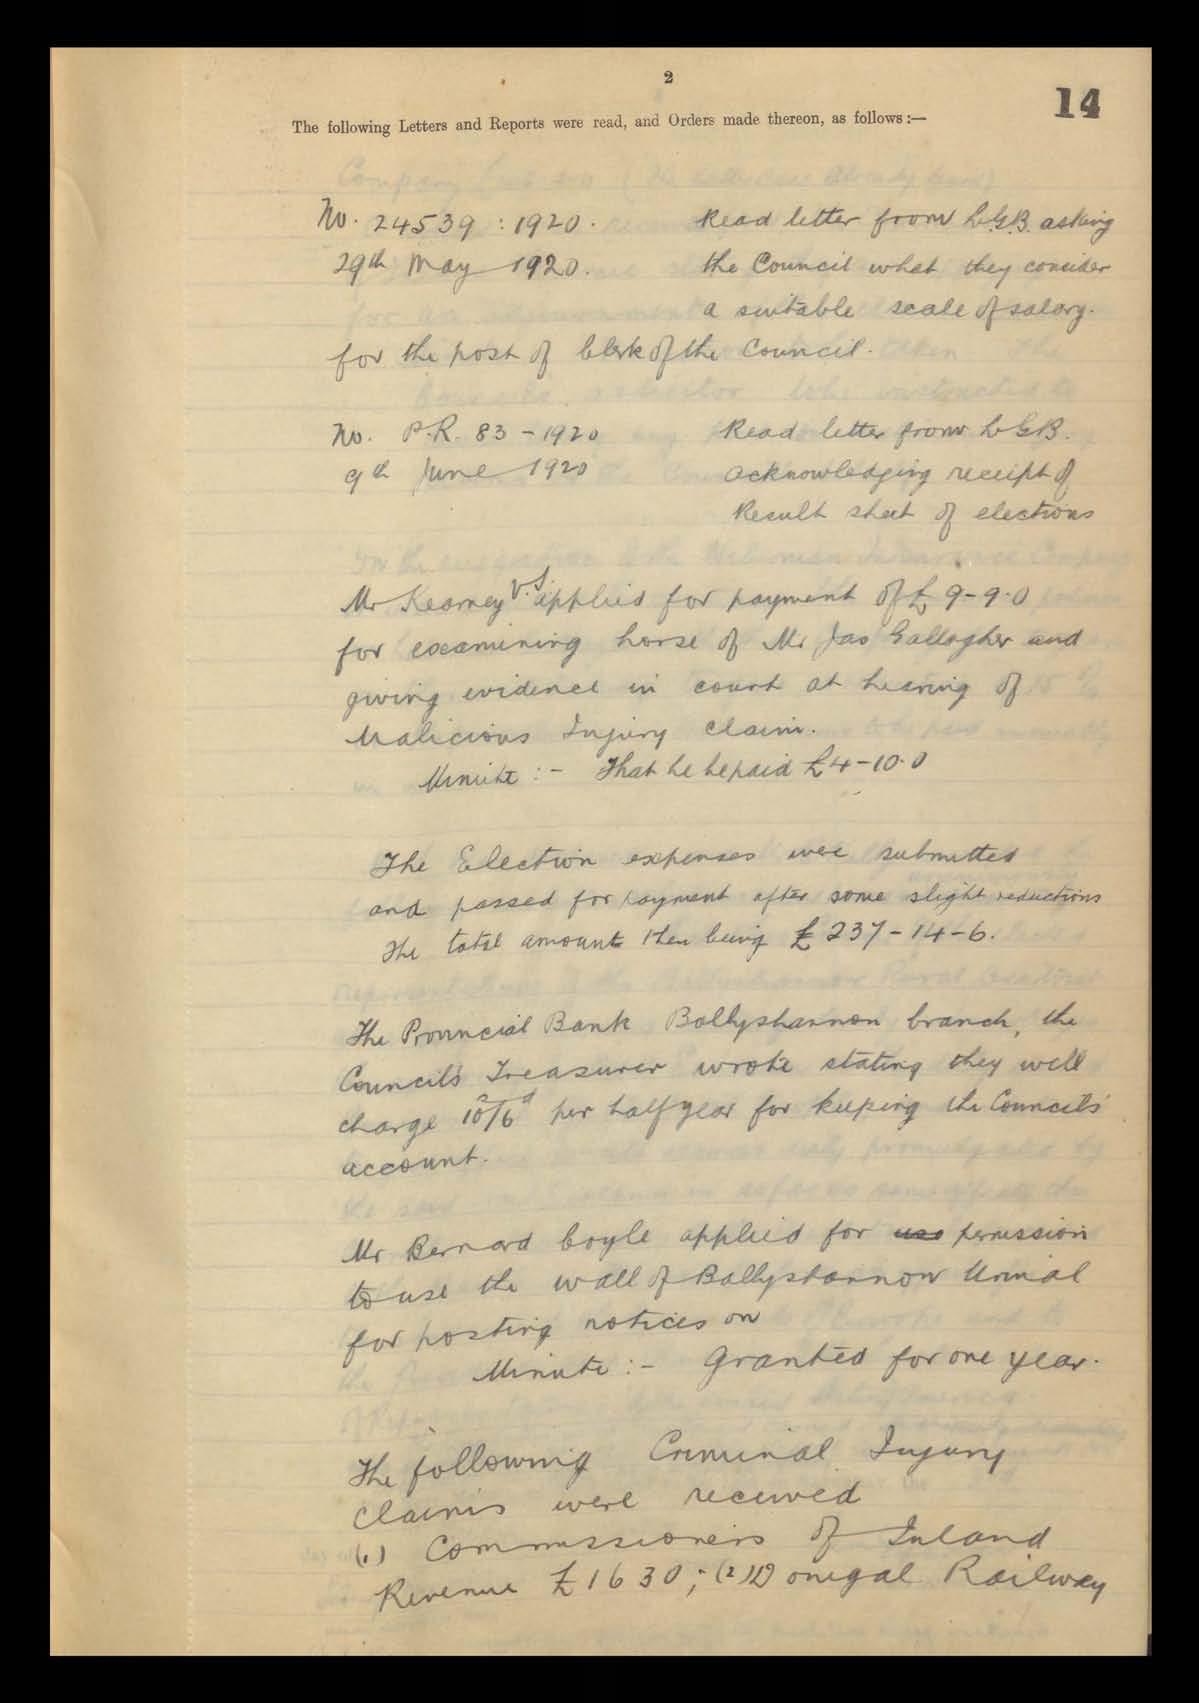 2
14
The following Letters and Reports were read, and Orders made thereon, as follows :—
No. 24539 : 1920. Read letter from L.G.B. asking
29th May 1920. the Council what they consider
a suitable scale of salary.
for the post of Clerk of the Council.
No. P.R. 83 - 1920 Read letter from L G B.
9th June 1920 acknowledging receipt of
Result sheet of elections
Mr Kearney V.S. applied for payment of £9-9-0
for examining horse of Mr Jas Gallagher and
giving evidence in court at hearing of
Malicious Injury claim.
Minute :- That he be paid £4-10-0
The Election expenses were submitted
and passed for payment after some slight reductions
The total amount then being £237-14-6.
The Provincial Bank Ballyshannon branch, the
Council's Treasurer wrote stating they will
charge 10s/6d per half year for keeping the Council's
account.
Mr Bernard Coyle applied for use permission
to use the wall of Ballyshannon Urinal
for posting notices on
Minute :- Granted for one year.
The following Criminal Injury
claims were received
(1) Commissioners of Inland
Revenue £1630; (2) Donegal Railway